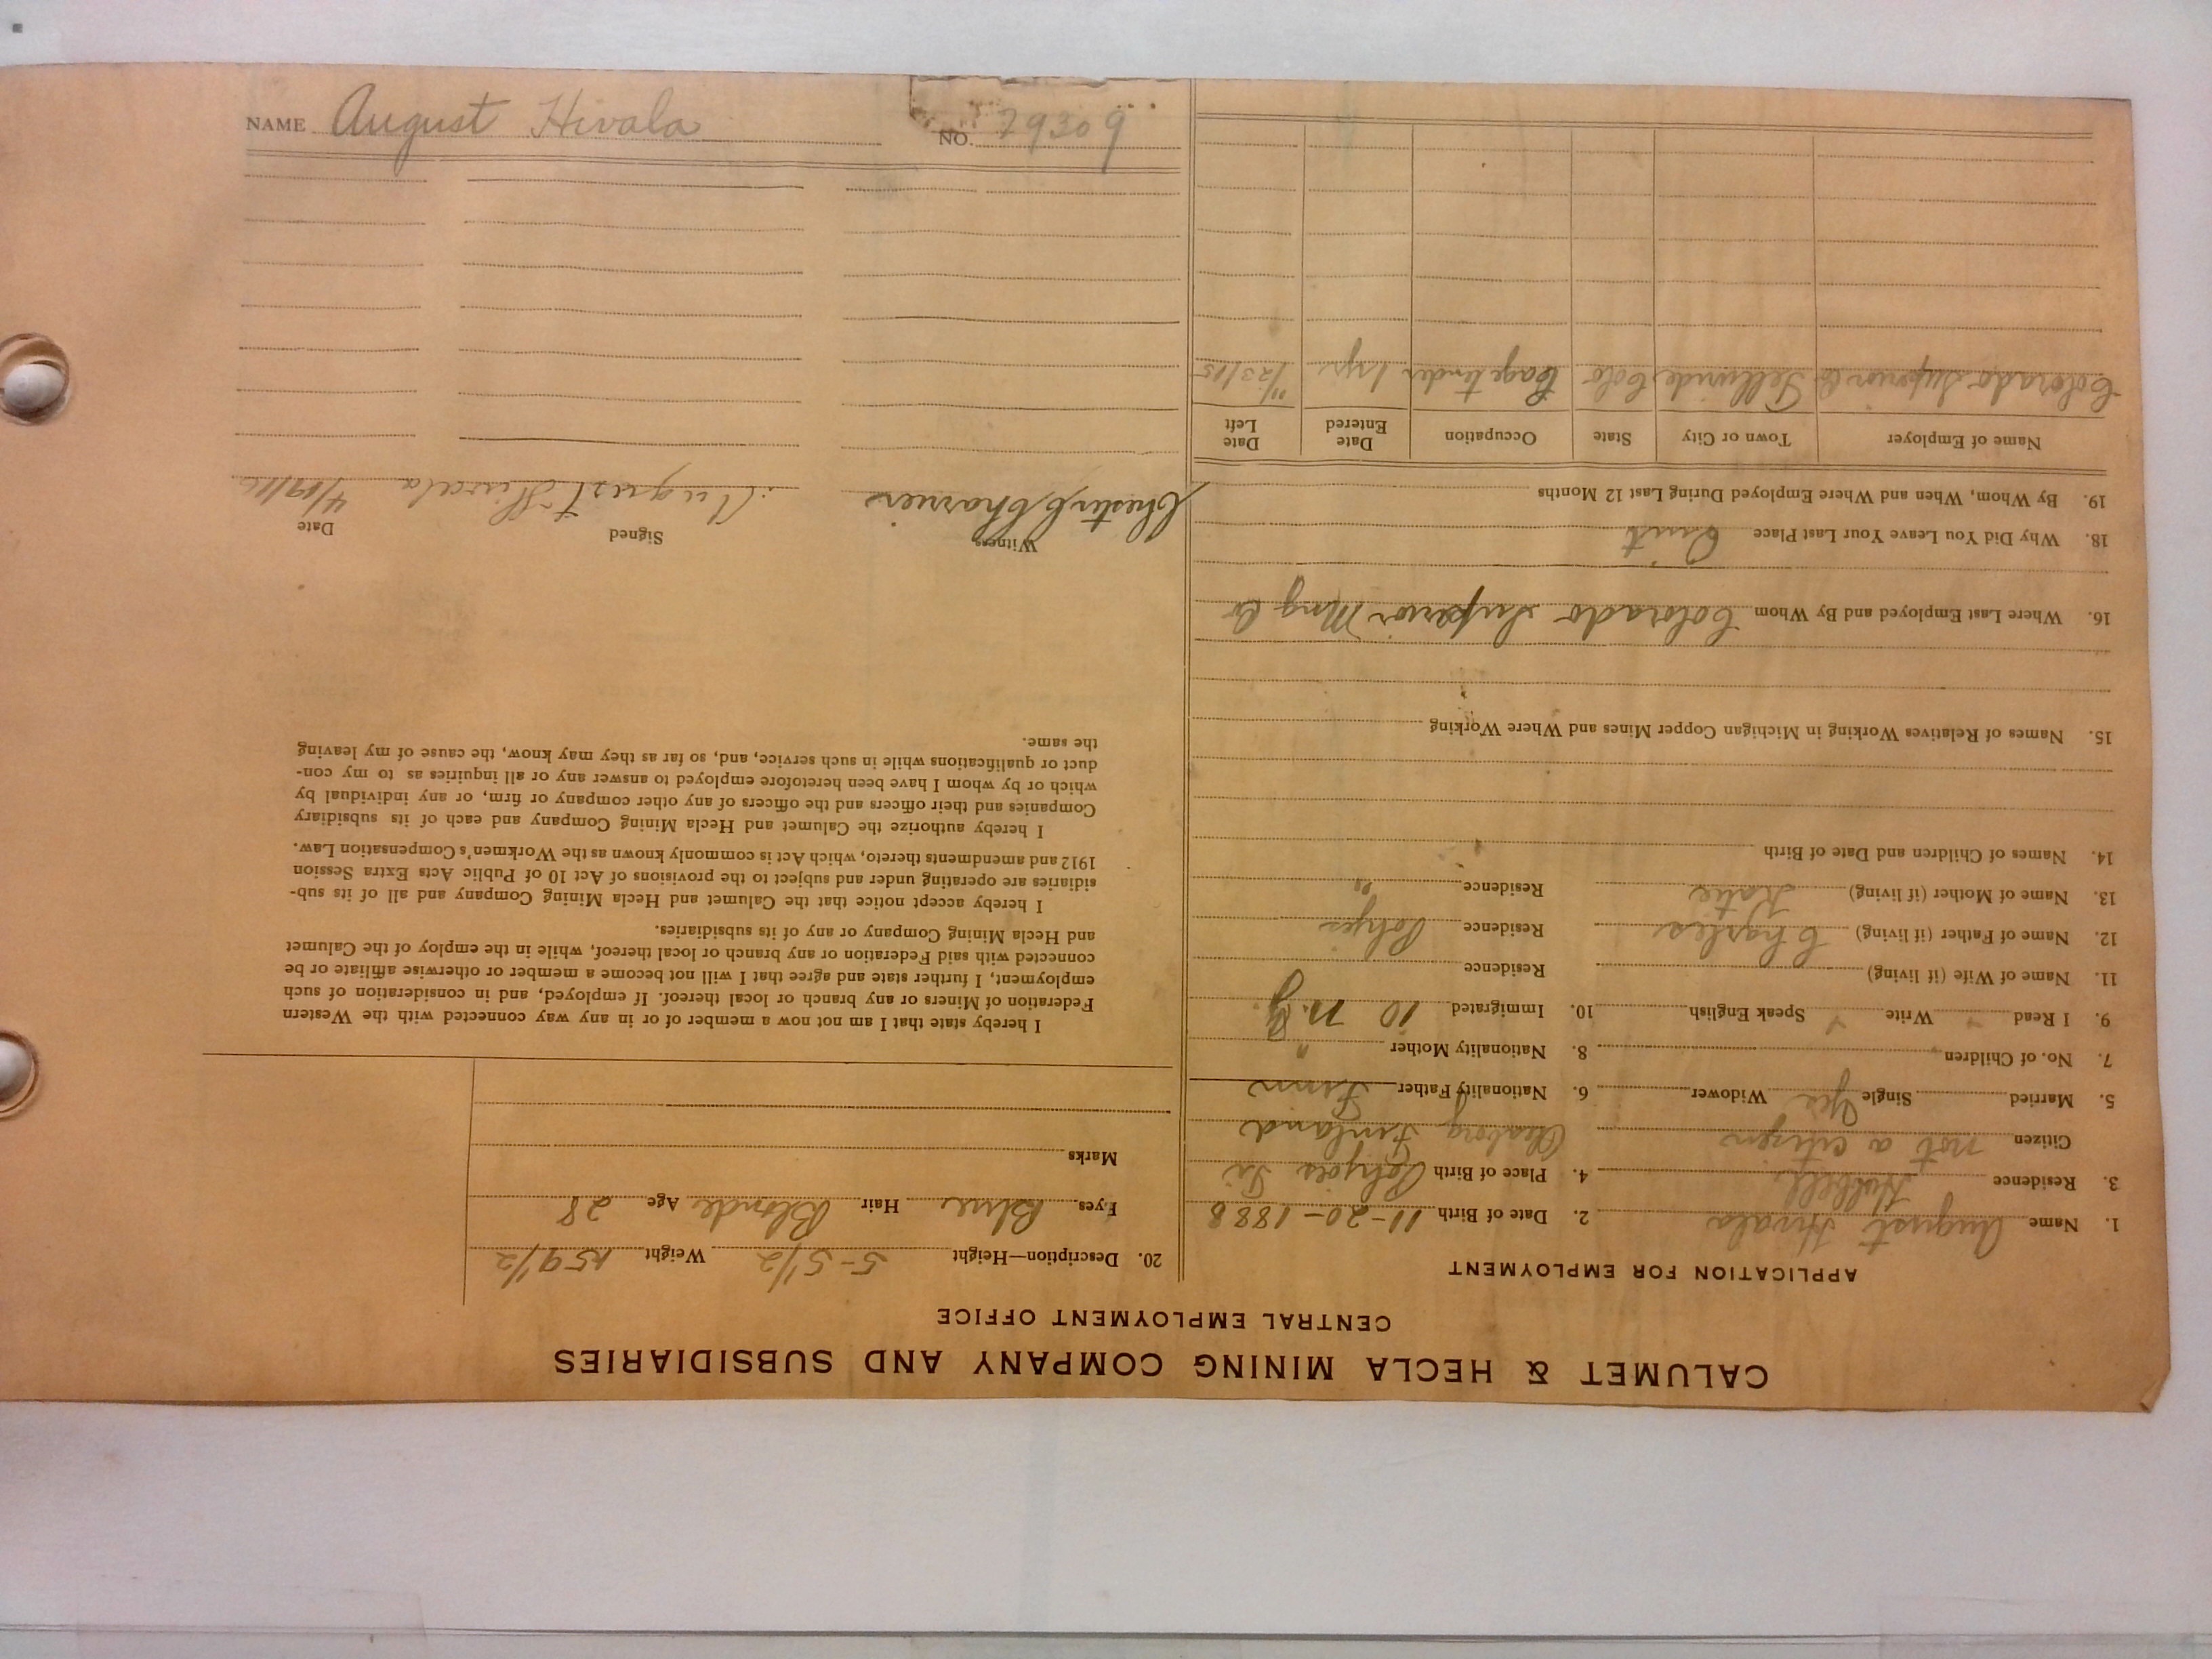 CALUMET & HECLA MINING COMPANY AND SUBSIDIARIES
CENTRAL EMPLOYMENT OFFICE
APPLICATION FOR EMPLOYMENT
1. Name August Hivala 2. Date of Birth 11-20-1888
3. Residence Hubbell 4. Place of Birth
Citizen not a citizen Uleaborg Finland
5. Married Single Yes Widower 6. Nationality Father Finn
7. No. of Children 8. Nationality Mother "
9. I Read Write Speak English 10. Immigrated 10 N.Y.
11. Name of Wife (if living) Residence
12. Name of Father (if living) Charles Residence
13. Name of Mother (if living) Katie Residence "
14. Names of Children and Date of Birth
15. Names of Relatives Working in Michigan Copper Mines and Where Working
16. Where Last Employed and By Whom Colorado Superior Mng Co
18. Why Did You Leave Your Last Place Quit
19. By Whom, When and Where Employed During Last 12 Months
Name of Employer Town or City State Occupation Date Entered Date Left
Colorado Superior Co Telluride Colo Cage tender 1 yr 11/23/15
20. Description—Height 5-5 1/2 Weight 159 1/2
Eyes Blue Hair Blonde Age 28
Marks
I hereby state that I am not now a member of or in any way connected with the Western
Federation of Miners or any branch or local thereof. If employed, and in consideration of such
employment, I further state and agree that I will not become a member or otherwise affiliate or be
connected with said Federation or any branch or local thereof, while in the employ of the Calumet
and Hecla Mining Company or any of its subsidiaries.
I hereby accept notice that the Calumet and Hecla Mining Company and all of its sub-
sidiaries are operating under and subject to the provisions of Act 10 of Public Acts Extra Session
1912 and amendments thereto, which Act is commonly known as the Workmen's Compensation Law.
I hereby authorize the Calumet and Hecla Mining Company and each of its subsidiary
Companies and their officers and the officers of any other company or firm, or any individual by
which or by whom I have been heretofore employed to answer any or all inquiries as to my con-
duct or qualifications while in such service, and, so far as they may know, the cause of my leaving
the same.
Witness Signed Date
August Hivala
NAME August Hivala NO. 79309